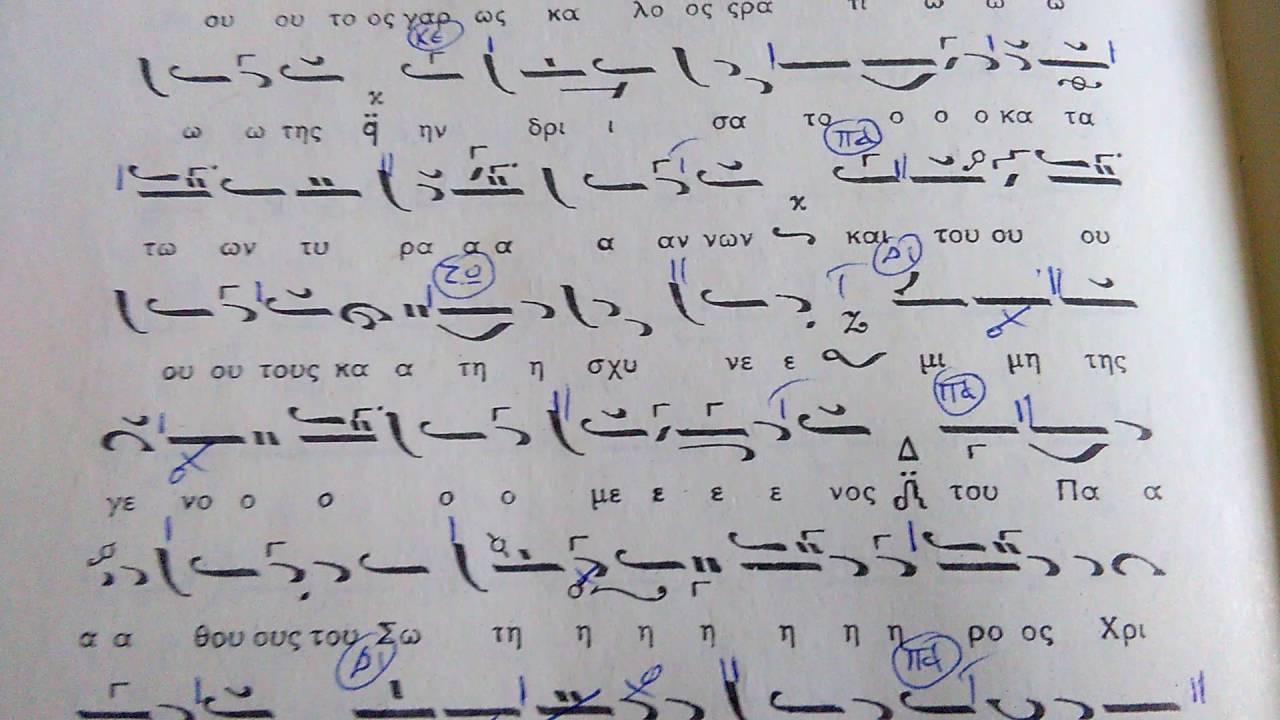 ου ου το ος γαρ ως κα λο ος ςρα τι ω ω ω
κε
ω ω της q̈ ην δρι ι σα το ο ο ο κα τα
πα
τω ων τυ ρα α α α αν νων και του ου ου
ου ου τους κα α τη η σχυ νε ε μι μη της
πα
γε νο ο ο ο ο με ε ε ε νος Δ του Πα α
α α θου ους του Σω τη η η η η η η ρο ος Χρι
πα